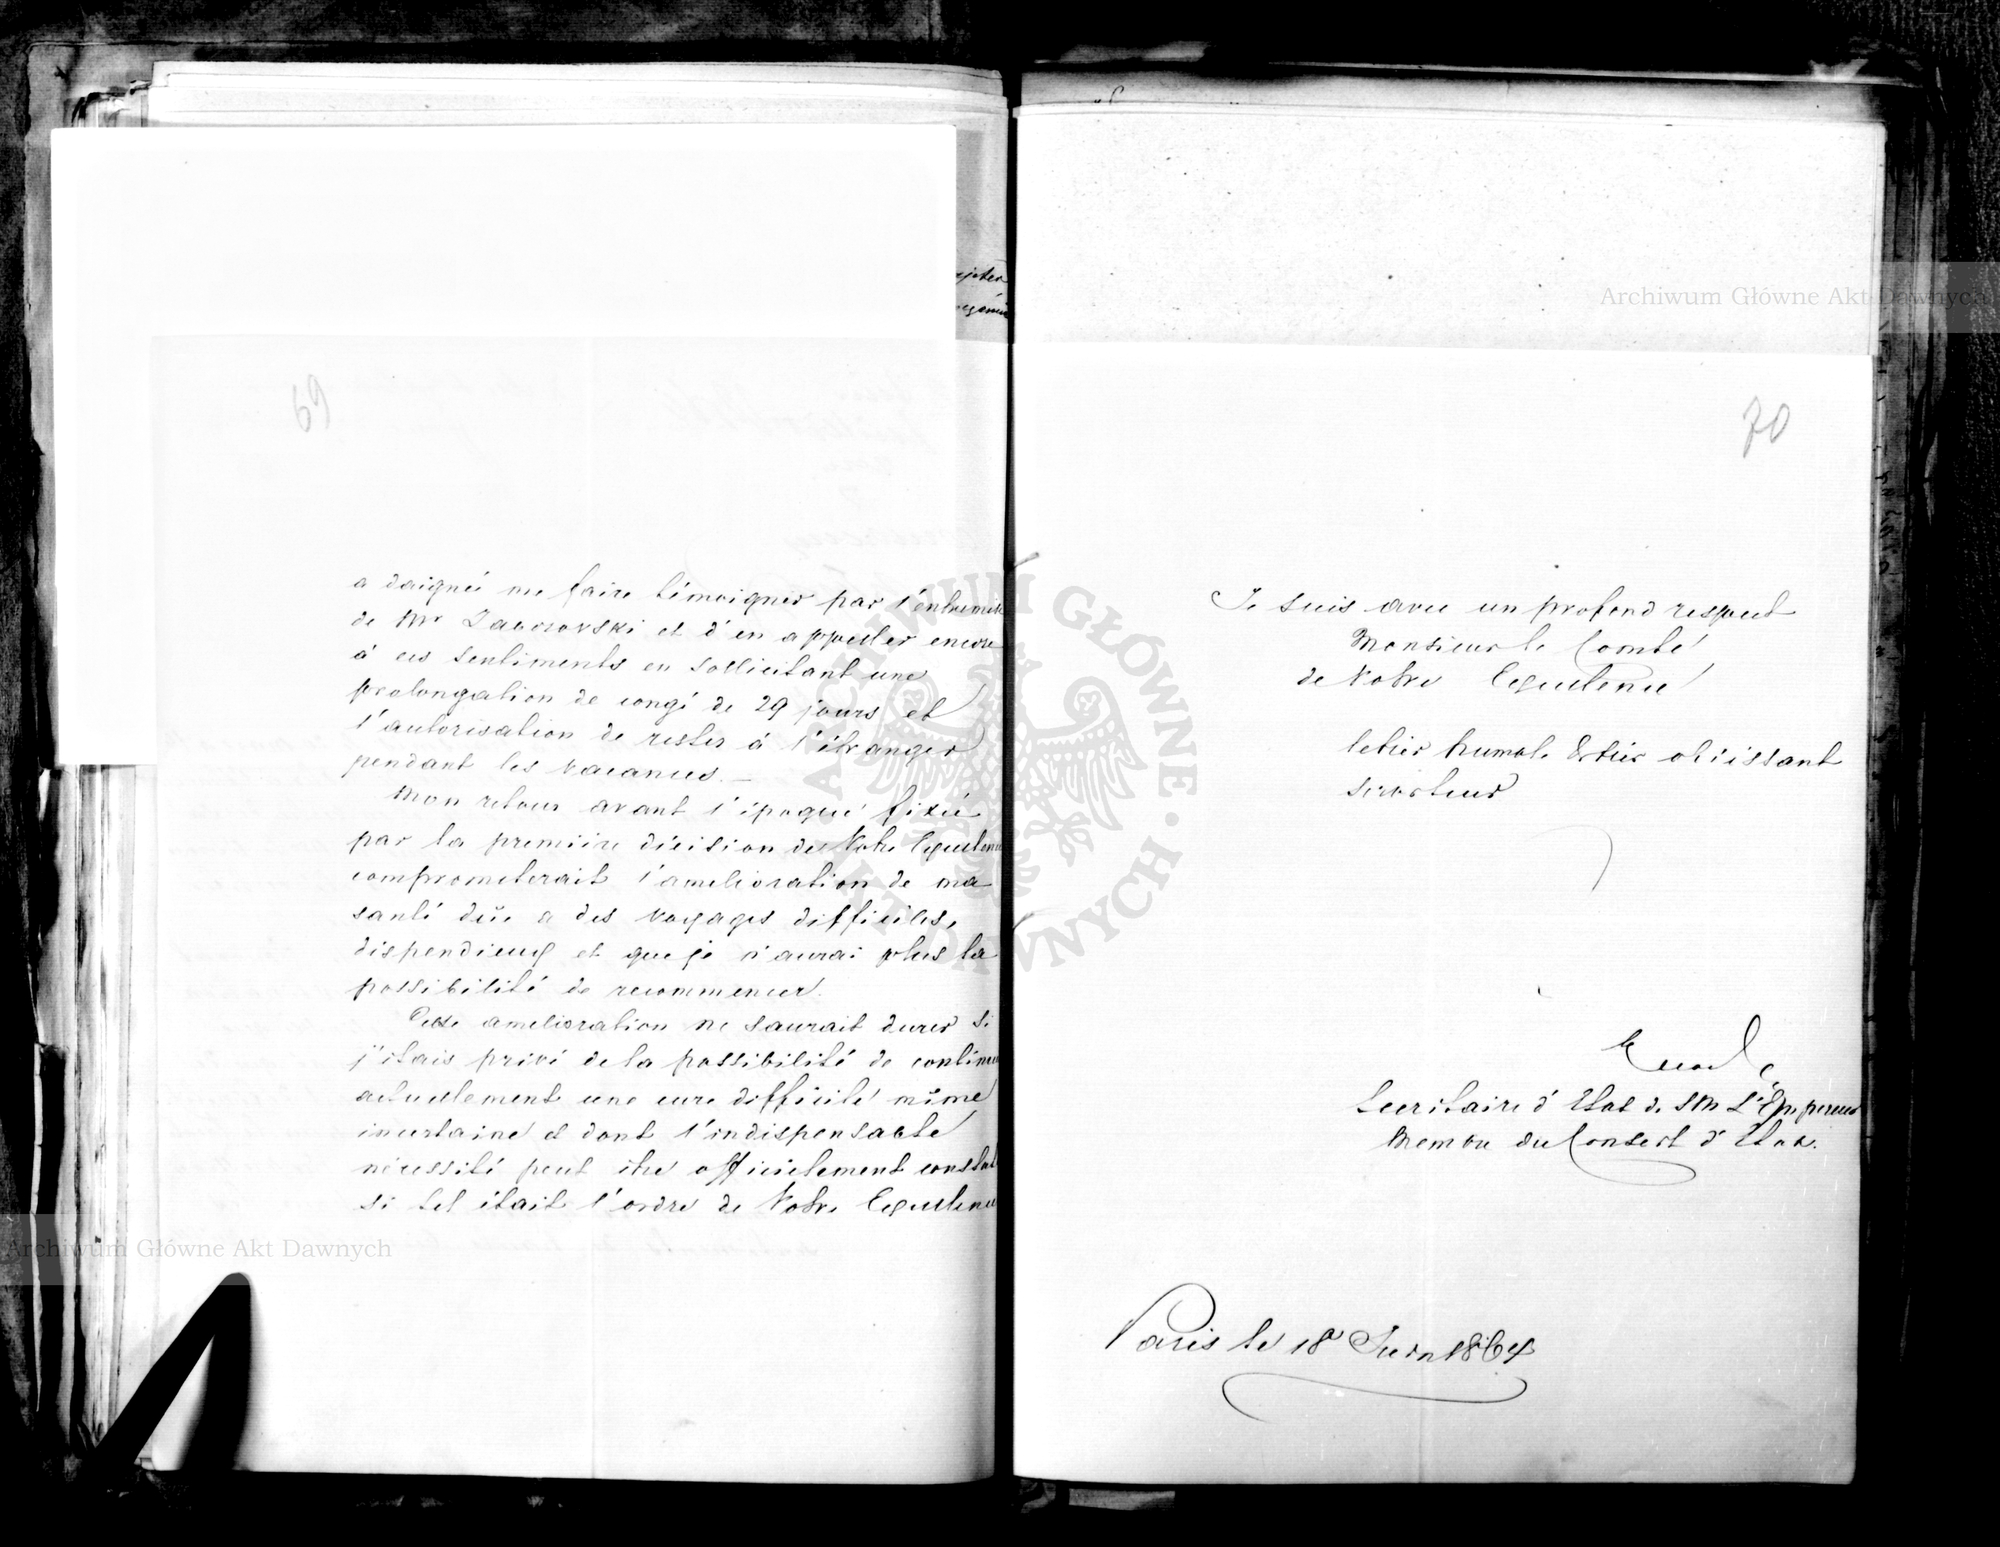 69
a daigné me faire témoigner par l'entremise
de Mr Zaborovski et d'en appeler encore
à ces sentiments en sollicitant une
prolongation de congé de 29 jours et
l'autorisation de rester à l'étranger
pendant les vacances. —
Mon retour avant l'époque fixée
par la première décision de Votre Excellence
comprometerait l'amelioration de ma
santé düe a des voyages difficiles,
dispendieux et que je n'aurai plus la
possibilité de recommencer.
Cette amelioration ne saurait durer si
j'étais privé de la possibilité de continuer
actuellement une cure difficile même
incertaine et dont l'indispensable
nécessité peut être officiellement constat
si tel était l'ordre de Votre Excellence
70
Je suis avec un profond respect
Monsieur le Comte
de Votre Excellence
le très humble & très obéissant
serviteur
Secrétaire d'Etat de SM L'Empereur
Membre du Conseil d'Etat.
Paris le 18 Juin 1864
Archiwum Główne Akt Dawnych
Archiwum Główne Akt Dawnych
ARCHIWUM GŁÓWNE AKT DAWNYCH